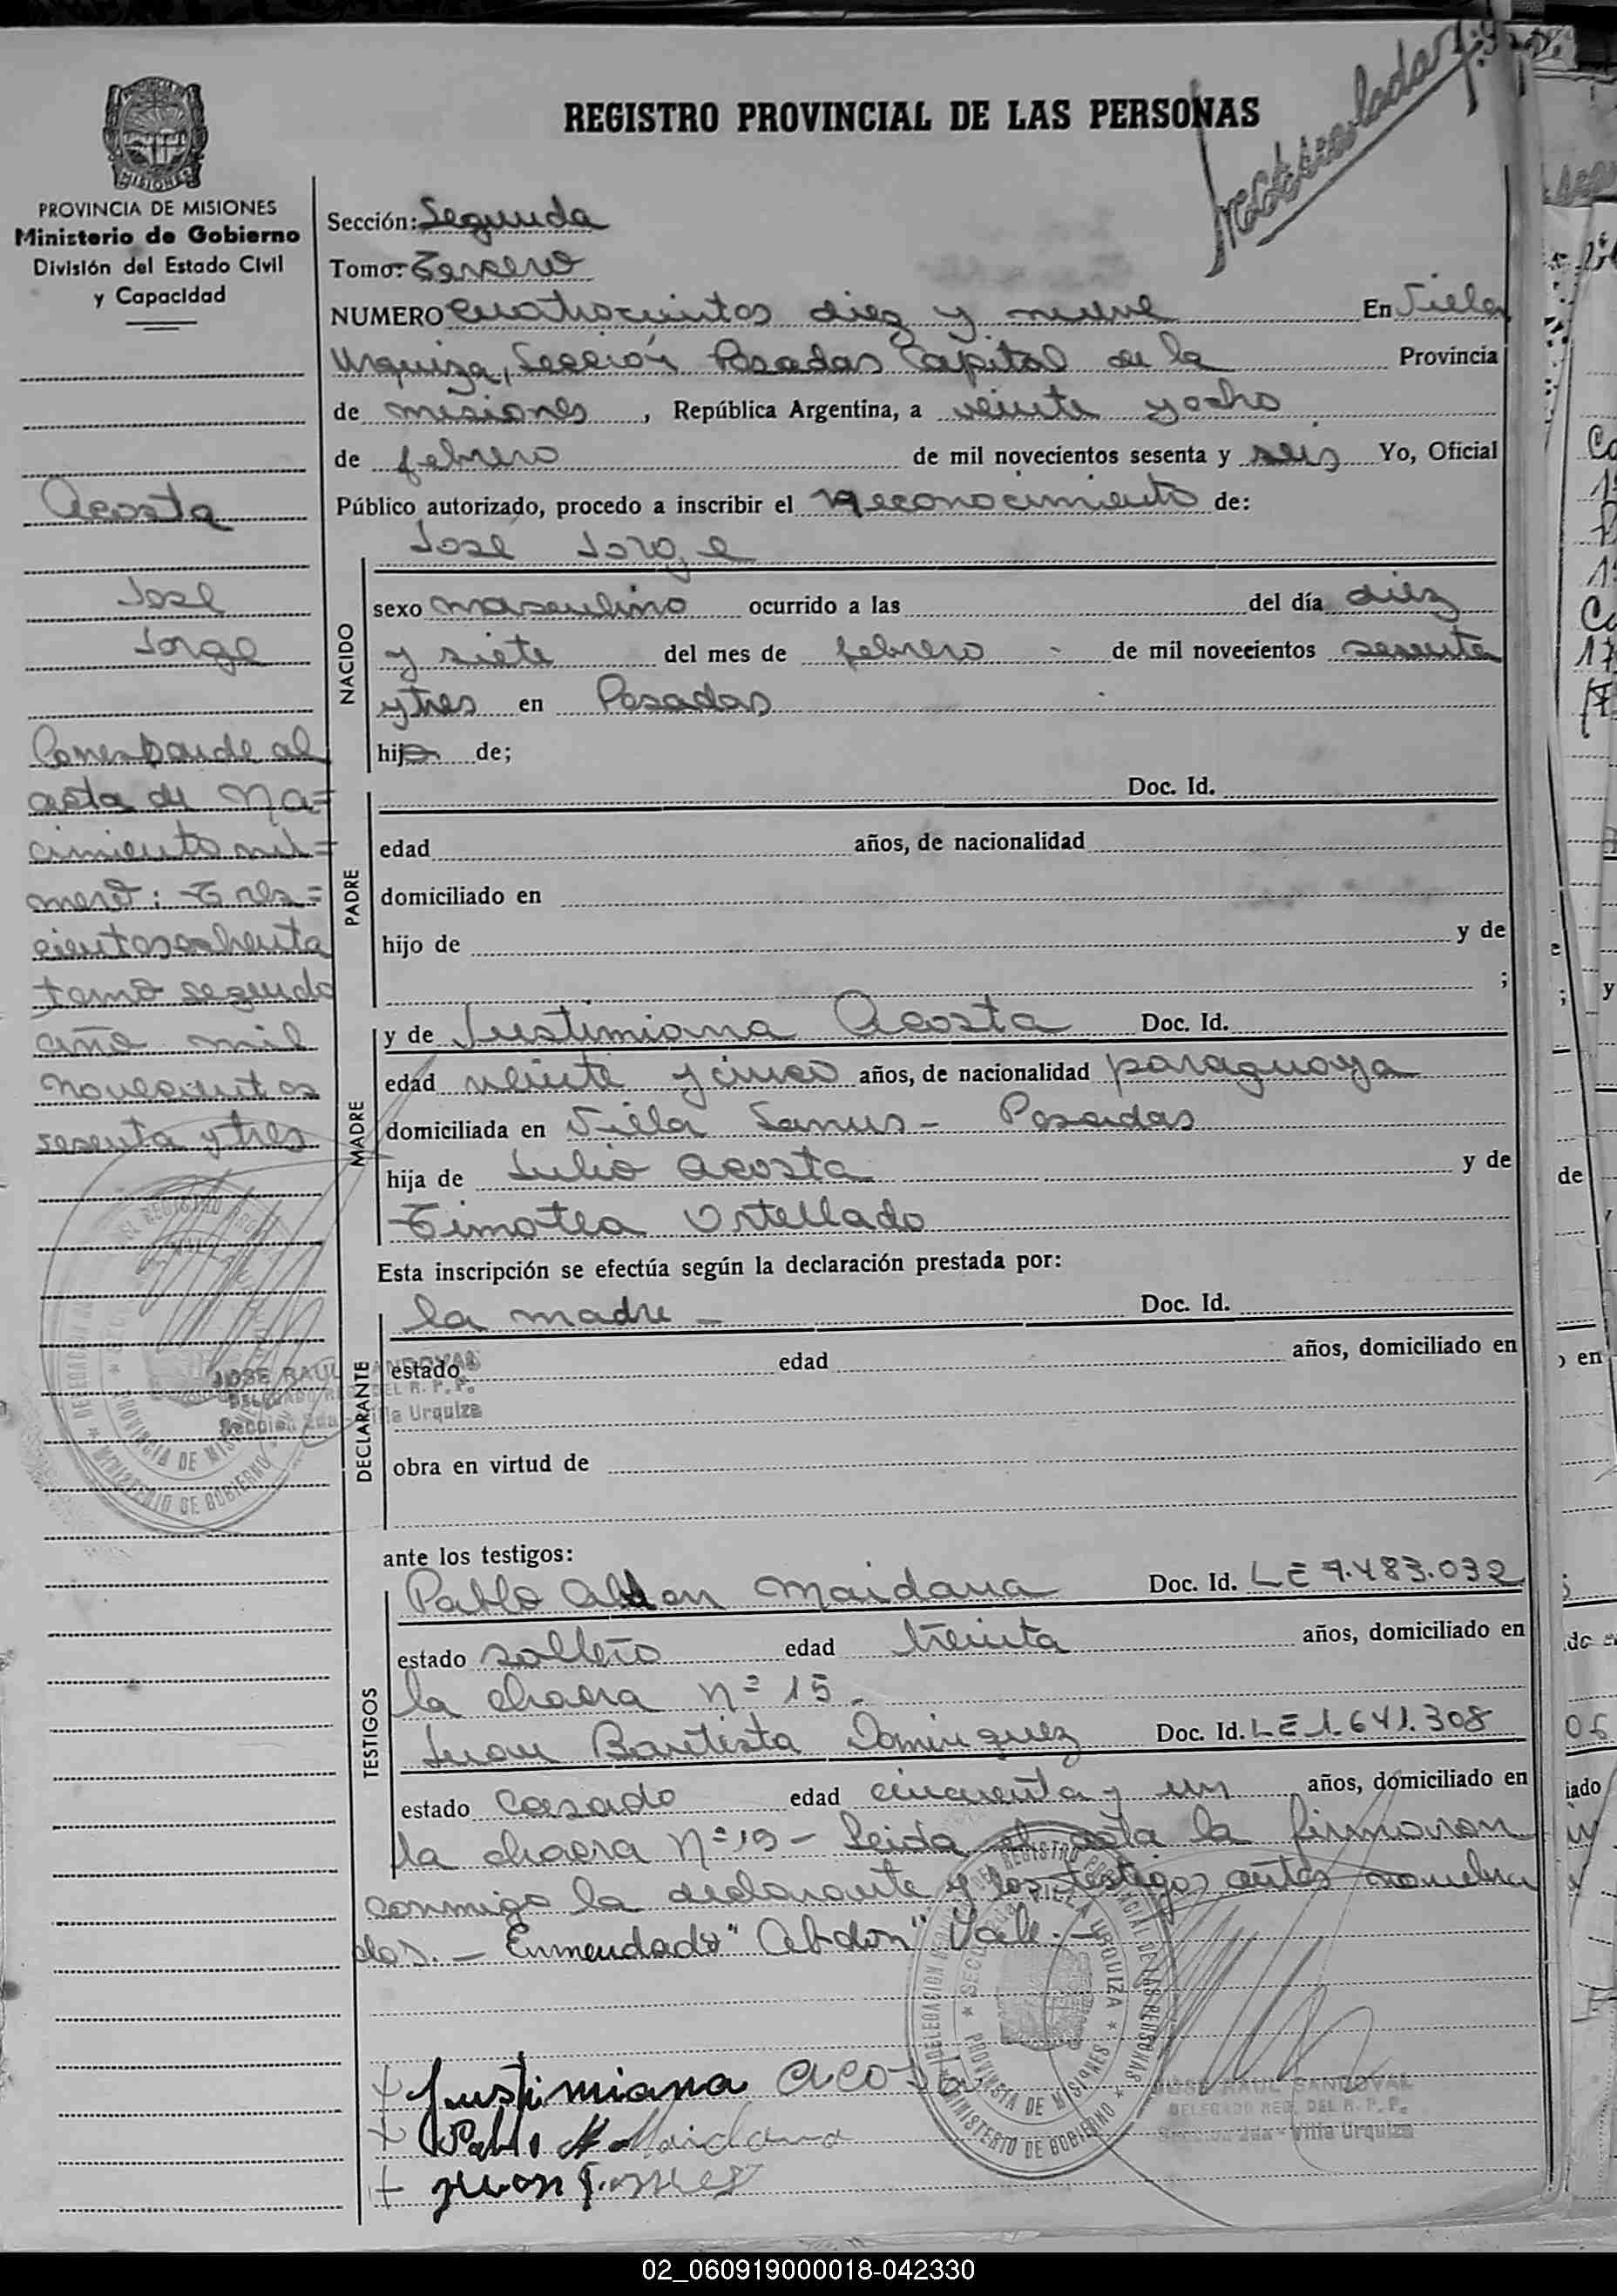 REGISTRO PROVINCIAL DE LAS PERSONAS
MISIONES
PROVINCIA DE MISIONES
Ministerio de Gobierno
División del Estado Civil
y Capacidad
Acosta
José
Jorge
Corresponde al
acta de na=
cimiento nú=
mero: Tres=
cientos ochenta
tomo segundo
año mil
novecientos
sesenta y tres
JOSE RAUL SANDOVAL
DELEGADO REG. DEL R. P. P.
Sección 2da - Villa Urquiza
Sección: Segunda
Tomo: Tercero
NUMERO Cuatrocientos diez y nueve En Villa
Urquiza, Sección Posadas Capital de la Provincia
de misiones, República Argentina, a veinte y ocho
de febrero de mil novecientos sesenta y seis Yo, Oficial
Público autorizado, procedo a inscribir el reconocimiento de:
José Jorge
NACIDO
sexo masculino ocurrido a las del día diez
y siete del mes de febrero - de mil novecientos sesenta
y tres en Posadas
hijo de;
PADRE
Doc. Id.
edad años, de nacionalidad
domiciliado en
hijo de y de
;
MADRE
y de Justiniana Acosta Doc. Id.
edad veinte y cinco años, de nacionalidad paraguaya
domiciliada en Villa Lanus - Posadas
hija de Julio Acosta y de
Timotea Ortellado
Esta inscripción se efectúa según la declaración prestada por:
DECLARANTE
la madre - Doc. Id.
estado edad años, domiciliado en
obra en virtud de
ante los testigos:
TESTIGOS
Pablo Abdon Maidana Doc. Id. LE 7.483.032
estado soltero edad treinta años, domiciliado en
la chacra nº 15.
Juan Bautista Dominguez Doc. Id. LE 1.641.308
estado Casado edad cincuenta y un años, domiciliado en
la chacra Nº 19 - Leida el acta la firmaron
conmigo la declarante y los testigos antes nombra
dos. - Enmendado "Abdon" Vale. -
+ Justimiana Acosta
+ Pablo A Maidana
+ Juan
DELEGACION REGISTRO PROVINCIAL DE LAS PERSONAS
* SECC VILLA URQUIZA *
PROVINCIA DE MISIONES
* MINISTERIO DE GOBIERNO *
JOSE RAUL SANDOVAL
DELEGADO REG. DEL R. P. P.
Sección 2da - Villa Urquiza
02_060919000018-042330